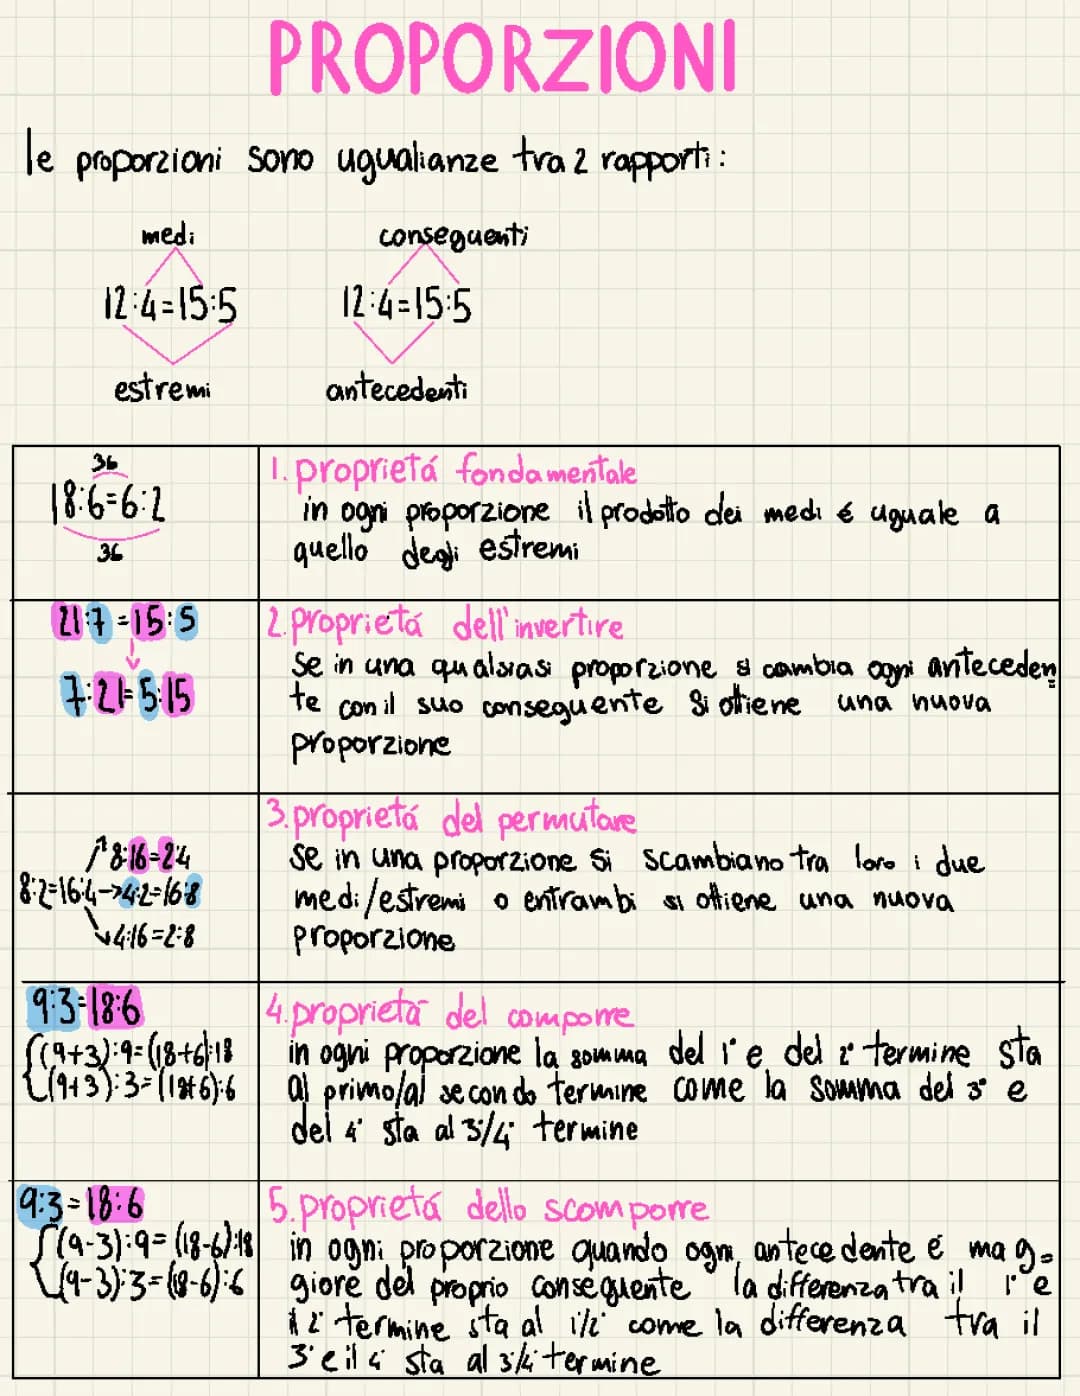 PROPORZIONI
le proporzioni sono ugualianze tra 2 rapporti:
medi
conseguenti
12:4=15:5
12:4=15:5
estremi
antecedenti
36
18:6=6:2
36
1. proprietá fondamentale
in ogni proporzione il prodotto dei medi é uguale a
quello degli estremi
21:7=15:5
7:21=5:15
2. proprietá dell'invertire
Se in una qualsiasi proporzione si cambia ogni anteceden
te con il suo conseguente si ottiene una nuova
proporzione
8:16=2:4
8:2=16:4→4:2=16:8
4:16=2:8
3. proprietá del permutare
Se in una proporzione si scambiano tra loro i due
medi/estremi o entrambi si ottiene una nuova
proporzione
9:3=18:6
(9+3):9=(18+6):18
(9+3):3=(18+6):6
4. proprietá del comporre
in ogni proporzione la somma del 1° e del 2° termine sta
al primo/al secondo termine come la somma del 3° e
del 4° sta al 3°/4° termine
9:3=18:6
(9-3):9=(18-6):18
(9-3):3=(18-6):6
5. proprietá dello scomporre
in ogni proporzione quando ogni antecedente é mag-
giore del proprio conseguente la differenza tra il 1° e
il 2° termine sta al 1°/2° come la differenza tra il
3° e il 4° sta al 3°/4° termine